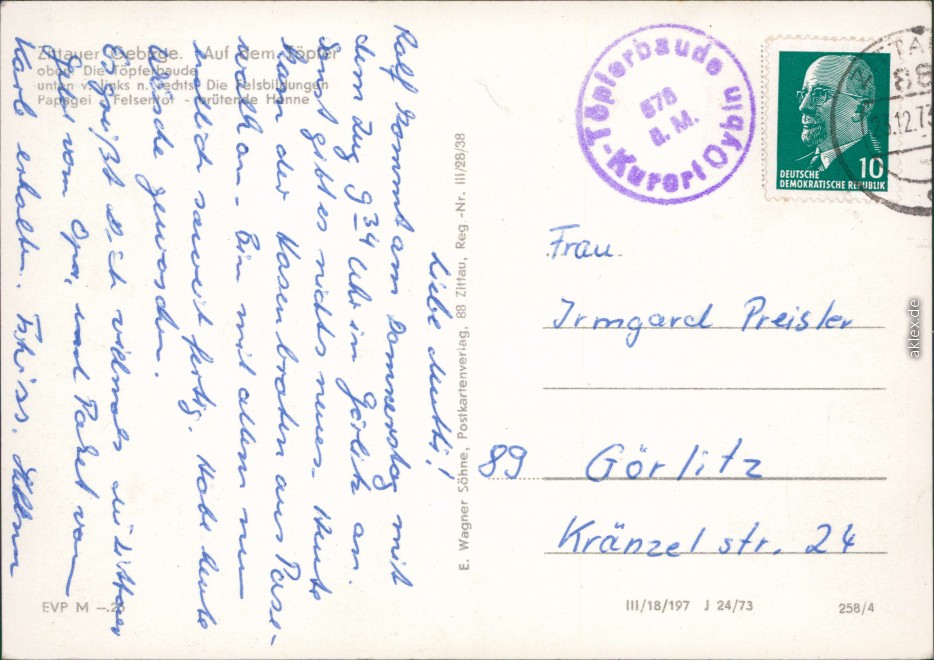 Zittauer Gebirge. Auf dem Töpfer
oben Die Töpferbaude
unten v. links n. rechts: Die Felsbildungen
Papagei - Felsentor - brütende Henne
Liebe Mutti!
Ralf kommt am Donnerstag mit
dem Zug 9 34 Uhr in Görlitz an.
Sonst gibt es nichts neues. Heute
kam der Hasenbraten aus Pase-
walk an. Bin mit allem nun
endlich soweit fertig. Habe heute
Hände gewaschen.
Es grüßt dich vielmals
von Opa, und Paket von
Karb erhalten.
E. Wagner Söhne, Postkartenverlag, 88 Zittau, Reg.-Nr. III/28/38
Töpferbaude
578
ü. M.
Kurort Oybin
DEUTSCHE
DEMOKRATISCHE REPUBLIK
10
88
12.73
Frau
Irmgard Preisler
89 Görlitz
Kränzelstr. 24
EVP M -.25
III/18/197 J 24/73
258/4
aklex.de